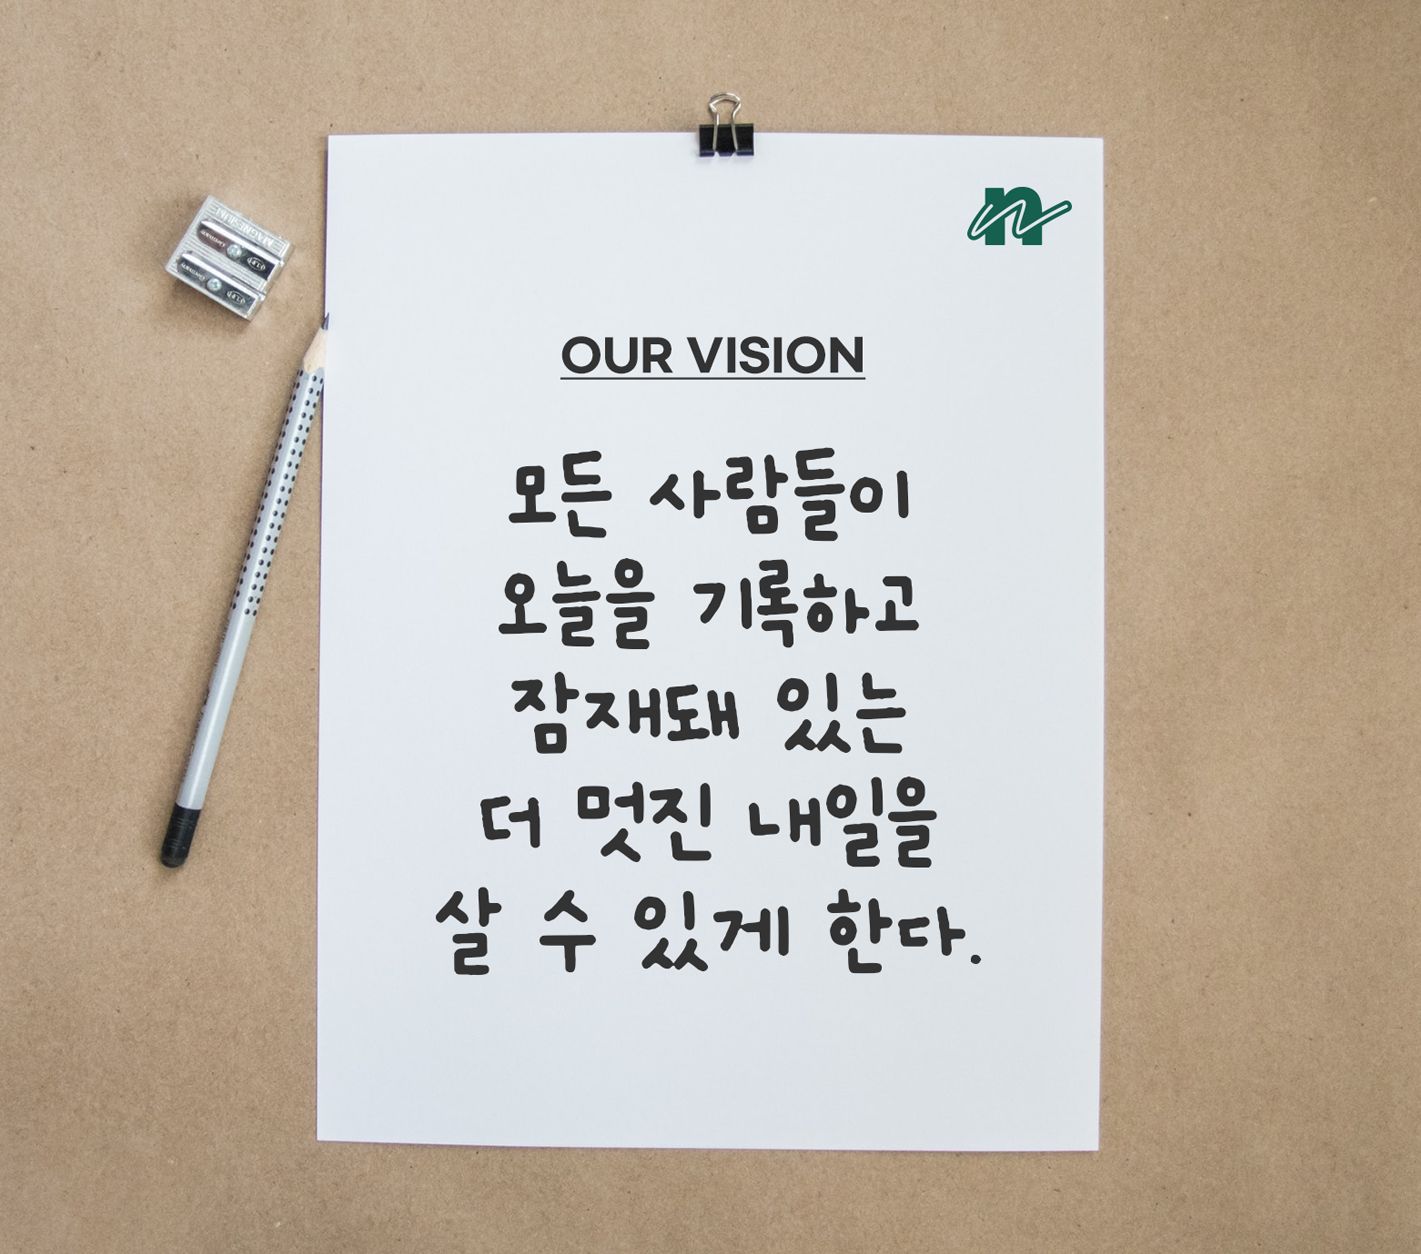 MAGNESIUM
n
OUR VISION
모든 사람들이
오늘을 기록하고
잠재돼 있는
더 멋진 내일을
살 수 있게 한다.